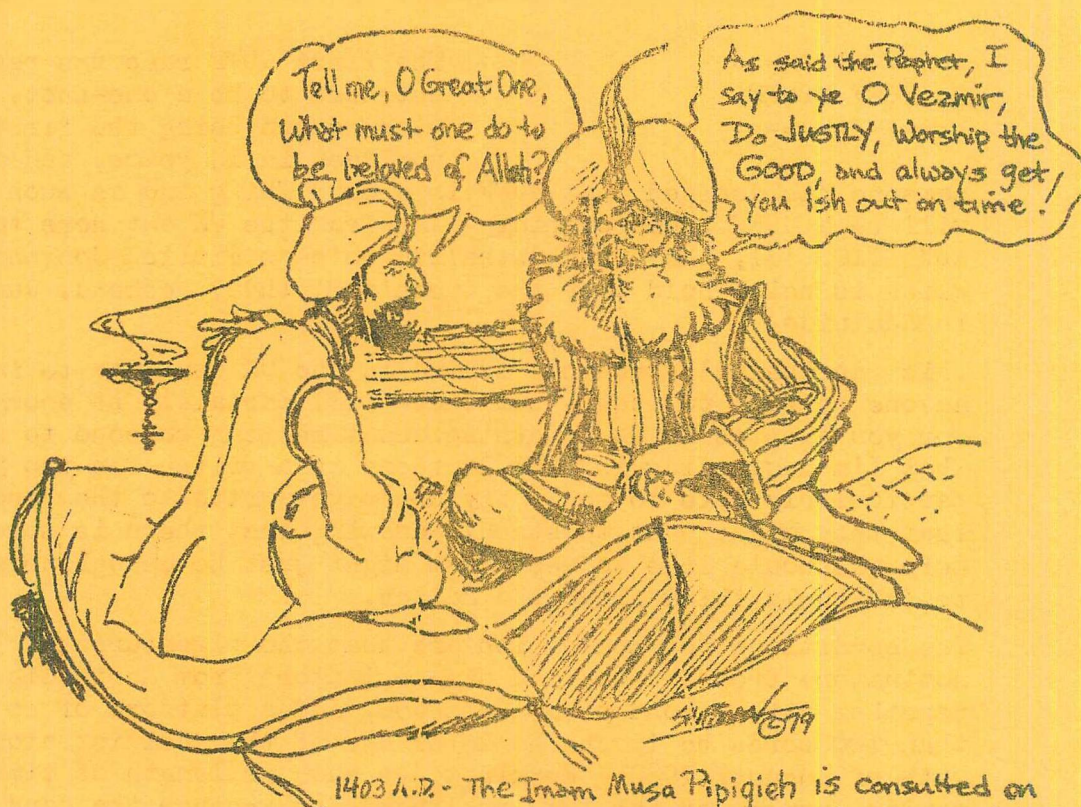 Tell me, O Great One,
What must one do to
be beloved of Allah?
As said the Prophet, I
say to ye O Vezmir,
Do JUSTLY, Worship the
GOOD, and always get
you Ish out on time!
©79
1403 A.D. - The Imam Musa Pipiqieh is consulted on